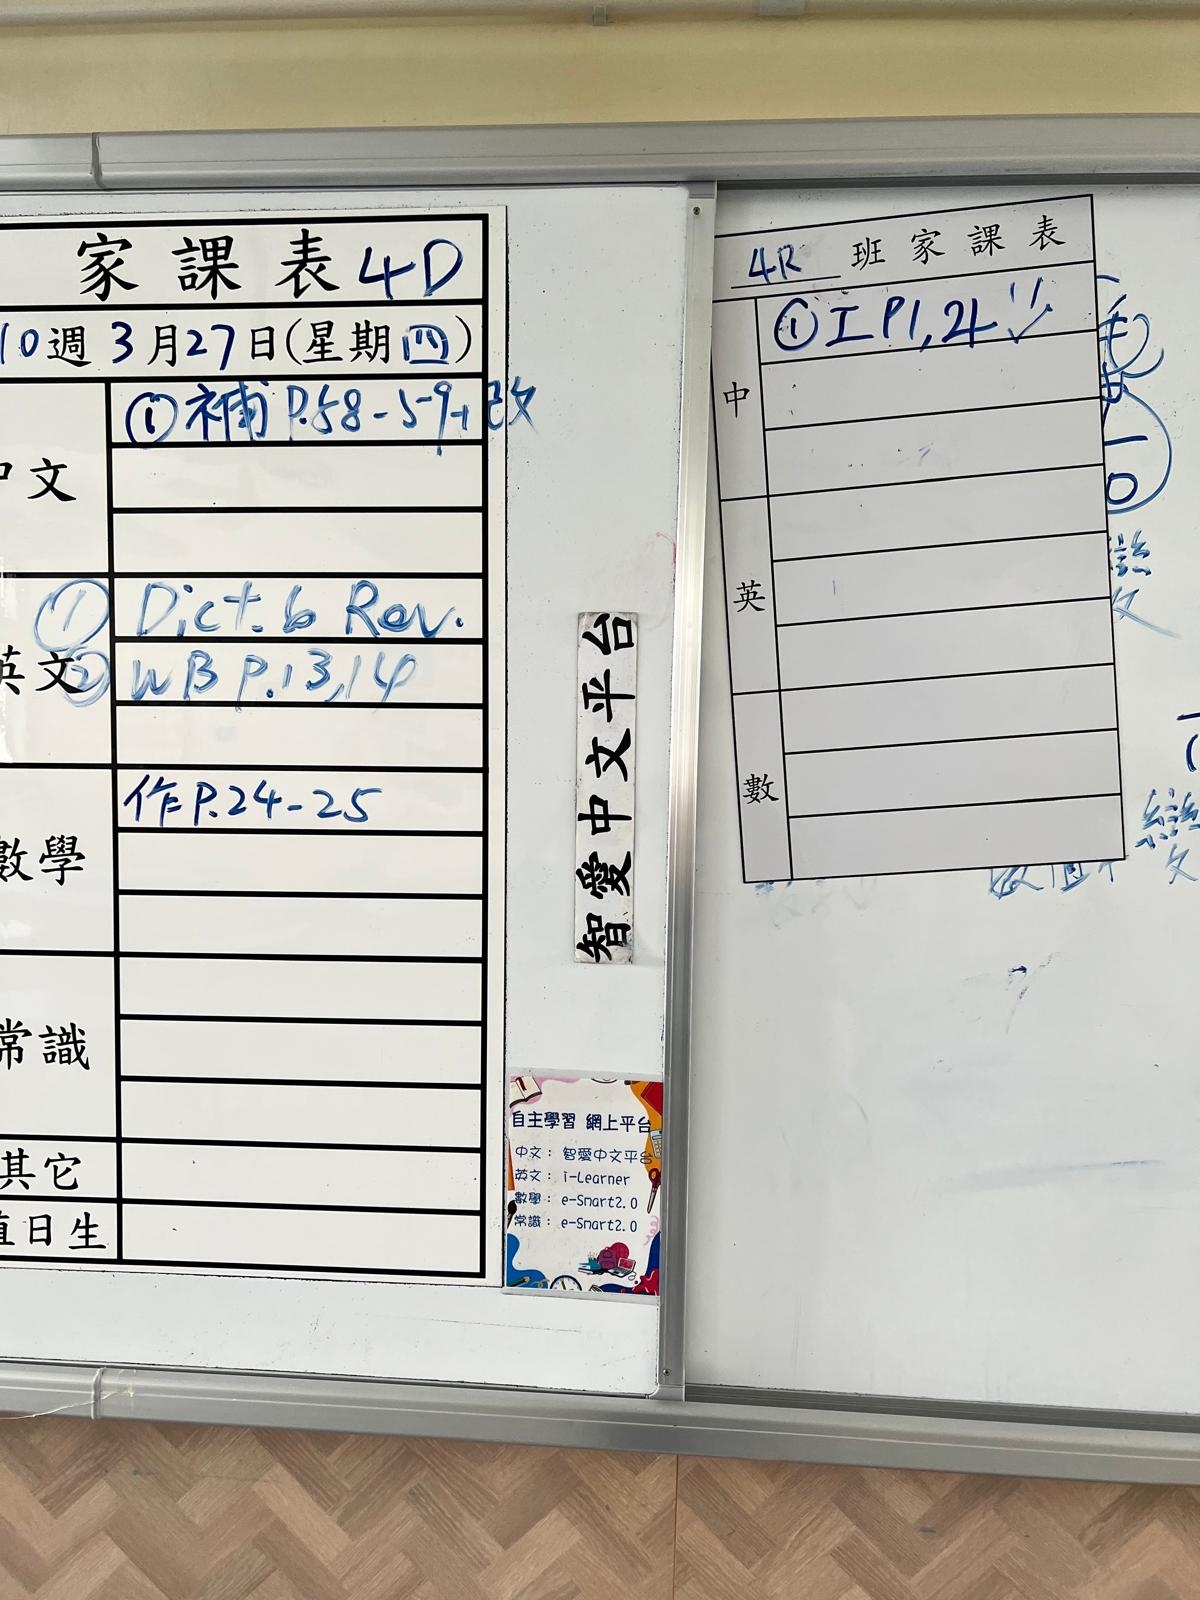 家課表 4D
10週 3月27日(星期四)
中文
①補 P.58-59+改
英文
① Dict. 6 Rev.
② WB P.13,14
數學
作P.24-25
常識
其它
值日生
智愛中文平台
自主學習 網上平台
中文： 智愛中文平台
英文： i-Learner
數學： e-Smart2.0
常識： e-Smart2.0
4R 班家課表
中
①工 P1,24
英
數